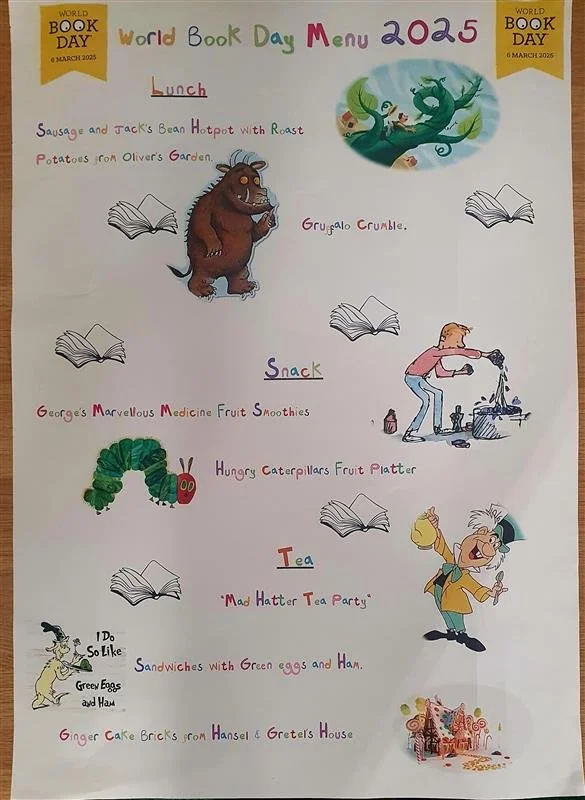 WORLD
BOOK
DAY
6 MARCH 2025
World Book Day Menu 2025
WORLD
BOOK
DAY
6 MARCH 2025
Lunch
Sausage and Jack's Bean Hotpot with Roast
Potatoes from Oliver's Garden.
Gruffalo Crumble.
Snack
George's Marvellous Medicine Fruit Smoothies
Hungry Caterpillars Fruit Platter
Tea
"Mad Hatter Tea Party"
I Do
So Like
Green Eggs
and Ham
Sandwiches with Green eggs and Ham.
Ginger Cake Bricks from Hansel & Gretel's House